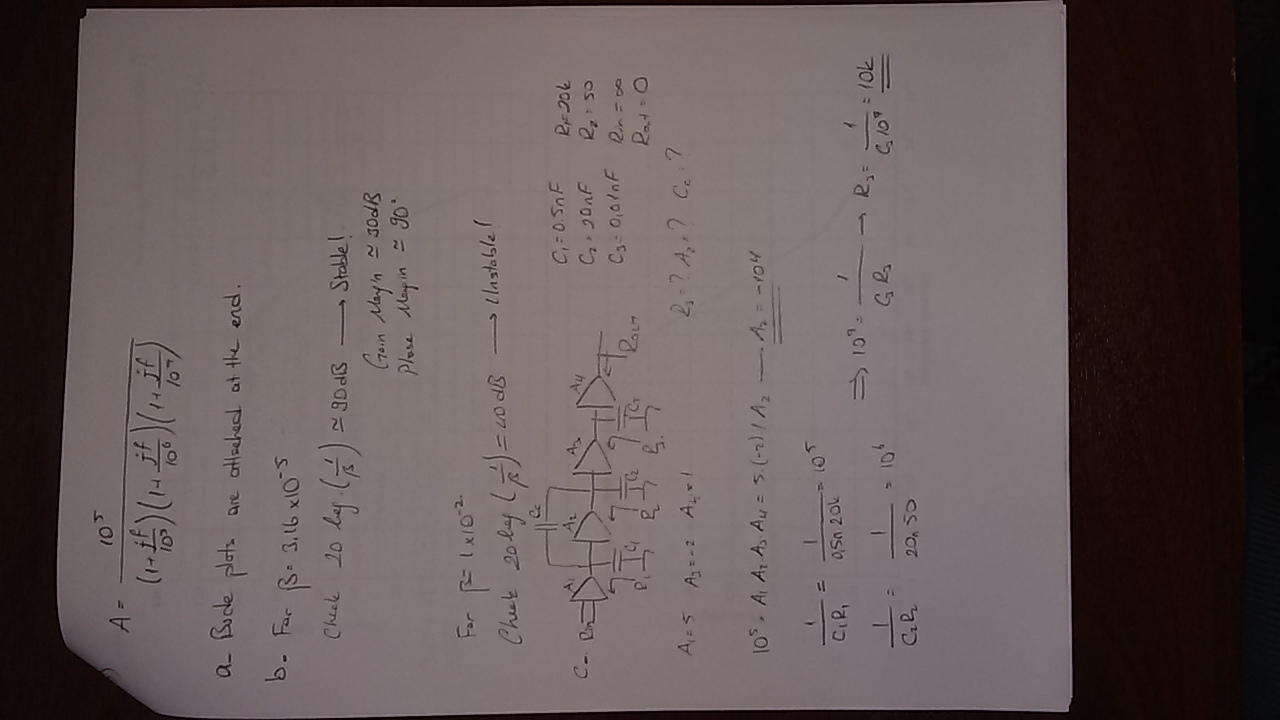 A = 10⁵ / (1+jf/10⁵)(1+jf/10⁶)(1+jf/10⁷)
a- Bode plots are attached at the end.
b- For β = 3.16 x10⁻⁵
Check 20 log (1/β) ≅ 90dB → Stable!
Gain Margin ≅ 30dB
Phase Margin ≅ 90°
For β = 1x10⁻²
Check 20log (1/β) = 40dB → Unstable!
C- Rin A1 A2 Cc A3 A4 Rout
R1 C1 R2 C2 R3 C3
C1 = 0.5nF R1=20k
C2 = 20nF R2 = 50
C3 = 0,01nF Rin = ∞
Rout = 0
A1=5 A3=-2 A4=1 R3=? A2=? Cc=?
10⁵ = A1 A2 A3 A4 = 5.(-2)1 A2 — A2 = -10⁴
1/C1R1 = 1/0,5n 20k = 10⁵
1/C2R2 = 1/20n 50 = 10⁶ ⇒ 10⁷ = 1/C3R3 → R3 = 1/C3 10⁷ = 10k